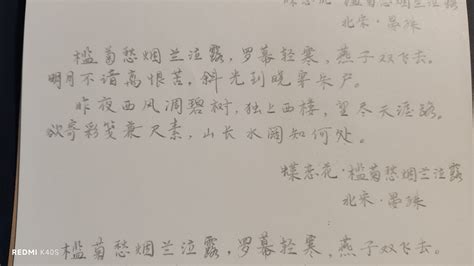 蝶恋花·槛菊愁烟兰泣露
北宋·晏殊
槛菊愁烟兰泣露，罗幕轻寒，燕子双飞去。
明月不谙离恨苦，斜光到晓穿朱户。
昨夜西风凋碧树，独上西楼，望尽天涯路。
欲寄彩笺兼尺素，山长水阔知何处。
蝶恋花·槛菊愁烟兰泣露
北宋·晏殊
槛菊愁烟兰泣露，罗幕轻寒，燕子双飞去。
REDMI K40S